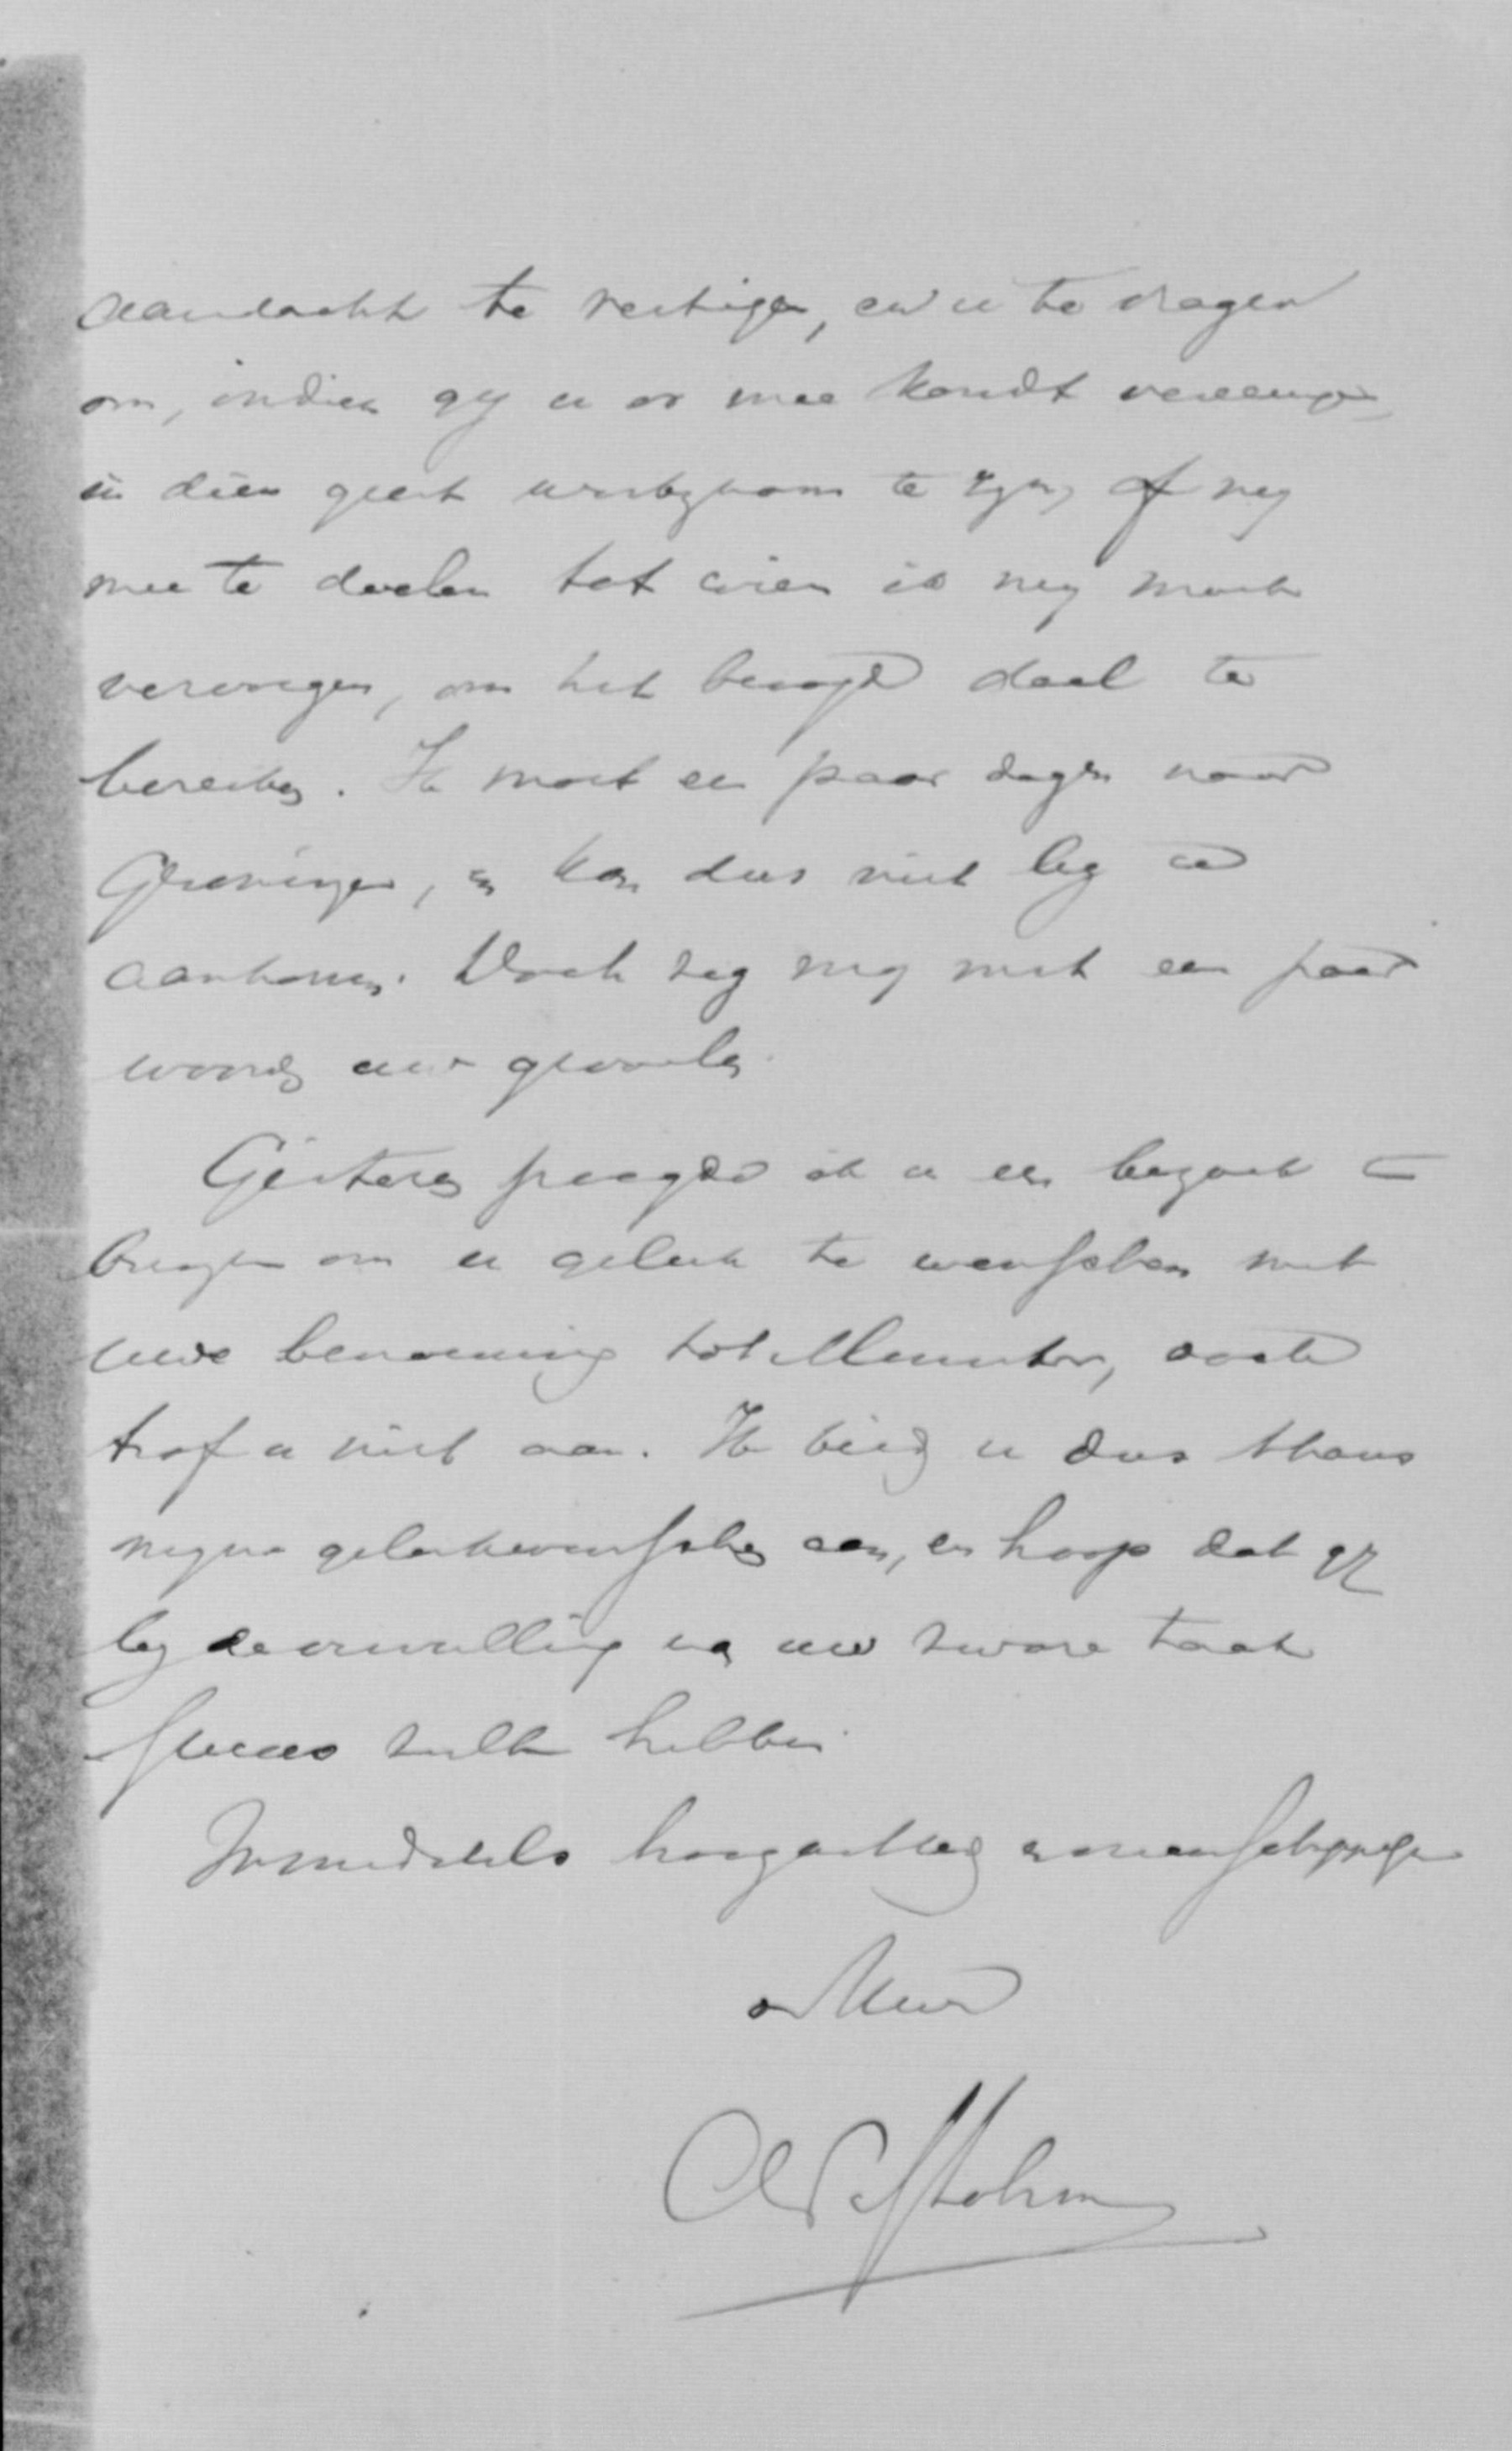 aandacht te vestigen, en u te vragen
om, indien gij u er mee kondt vereenigen,
in dien geest werkzaam te zijn, of mij
mee te deelen tot wien ik mij moet
vervoegen, om het beoogde doel te
bereiken. Ik moet een paar dagen naar
Groningen, en kan dus niet bij u
aankomen. Doch zeg mij met een paar
woorden uw gevoelen.
Gisteren poogde ik u een bezoek te
brengen om u geluk te wenschen met
uwe benoeming tot Minister, doch
trof u niet aan. Ik bied u dus thans
mijne gelukwenschen aan, en hoop dat gij
bij de vervulling van uw zware taak
succes zult hebben.
Inmiddels hoogachtend en vriendschappelijk
Uw